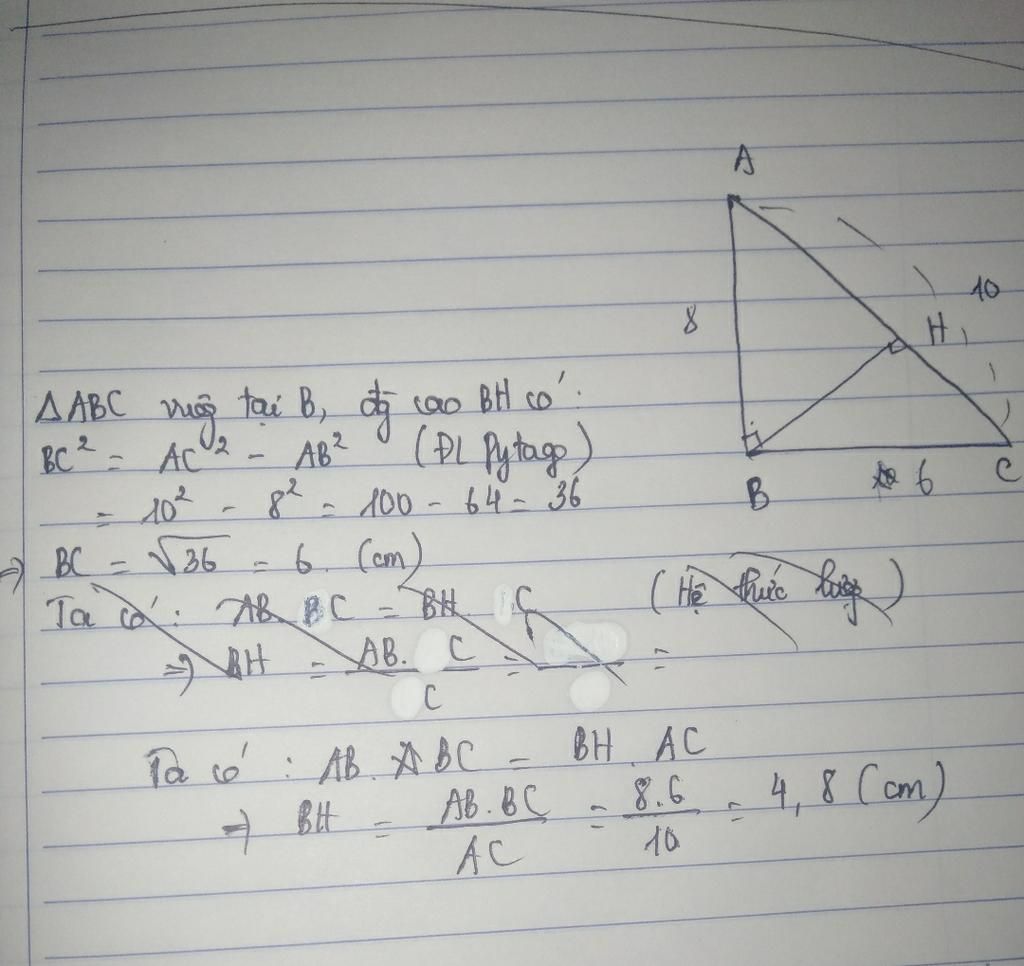 A
10
8
H
ΔABC vuôg tại B, đg cao BH có:
BC² = AC² - AB² (ĐL Pytago)
B
6
C
= 10² - 8² = 100 - 64 = 36
=> BC = √36 = 6 (cm)
Ta có: AB BC = BH C (Hệ thức lượg)
=> BH = AB. C / C = =
Ta có: AB. BC = BH. AC
=> BH = AB.BC / AC = 8.6 / 10 = 4,8 (cm)